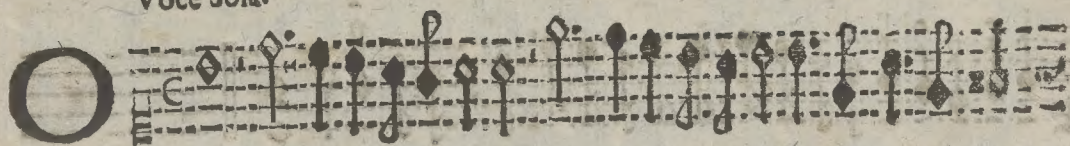 Voce sola.
O